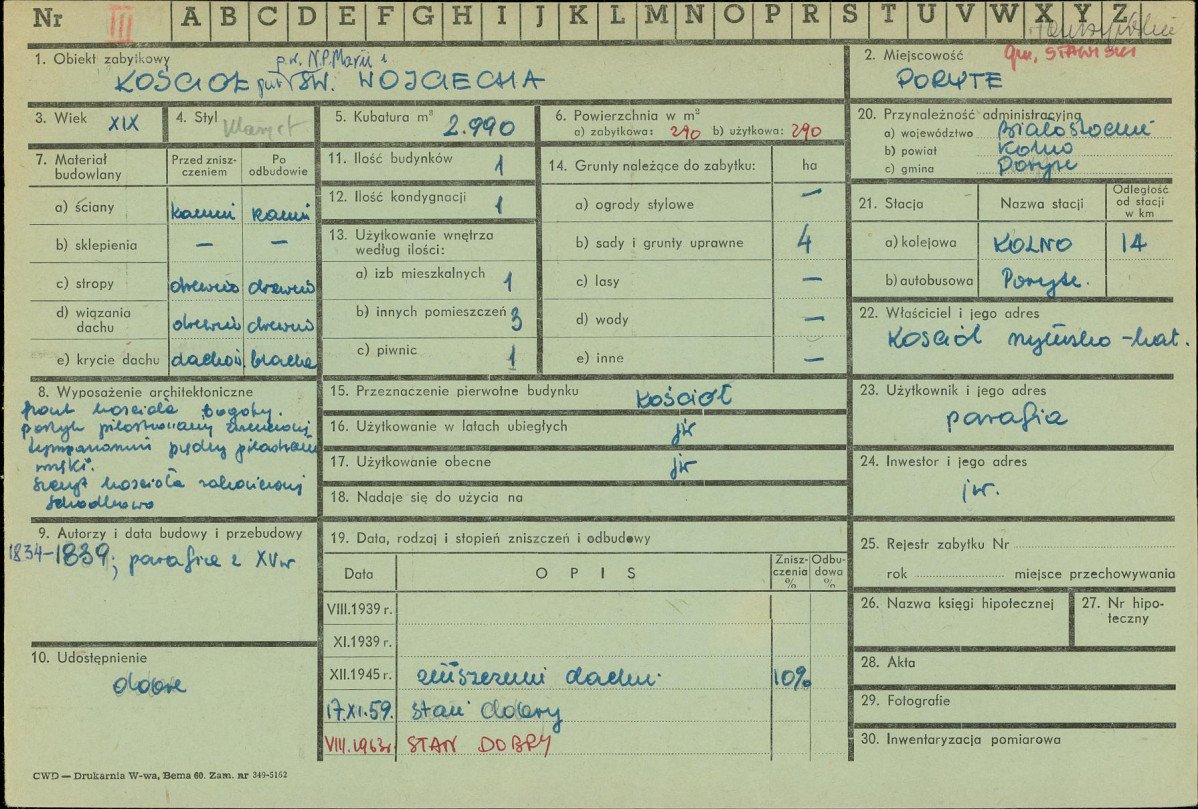 Nr III A B C D E F G H I J K L M N O P R S T U V W X Y Z
1. Obiekt zabytkowy p.w. N.P. Marii i
KOŚCIÓŁ pw ŚW. WOJCIECHA
2. Miejscowość gm. STAWISKI
PORYTE
3. Wiek XIX
4. Styl klasycyst
5. Kubatura m³ 2.990
6. Powierzchnia w m²
a) zabytkowa: 290 b) użytkowa: 290
20. Przynależność administracyjna
a) województwo Białostockie
b) powiat Kolno
c) gmina Poryte
7. Materiał budowlany
Przed zniszczeniem
Po odbudowie
a) ściany kamień kamień
b) sklepienia — —
c) stropy drewno drewno
d) wiązania dachu drewno drewno
e) krycie dachu dachów. blacha
11. Ilość budynków 1
12. Ilość kondygnacji 1
13. Użytkowanie wnętrza według ilości:
a) izb mieszkalnych 1
b) innych pomieszczeń 3
c) piwnic 1
14. Grunty należące do zabytku: ha
a) ogrody stylowe —
b) sady i grunty uprawne 4
c) lasy —
d) wody —
e) inne —
21. Stacja Nazwa stacji Odległość od stacji w km
a) kolejowa KOLNO 14
b) autobusowa Poryte.
22. Właściciel i jego adres
Kościół rzymsko-kat.
8. Wyposażenie architektoniczne
front kościoła bogaty.
portyk pilastrowany zwieńczony
tympanonem między pilastrami
niski.
szczyt kościoła zakończony
schodkowo
15. Przeznaczenie pierwotne budynku kościół
16. Użytkowanie w latach ubiegłych jw
17. Użytkowanie obecne jw
18. Nadaje się do użycia na
23. Użytkownik i jego adres
parafia
24. Inwestor i jego adres
jw.
9. Autorzy i data budowy i przebudowy
1834-1839; parafia z XVw
19. Data, rodzaj i stopień zniszczeń i odbudowy
Data OPIS Zniszczenia % Odbudowa %
VIII.1939 r.
XI.1939 r.
XII.1945 r. zniszczenie dachu. 10%
17.XI.59. stan dobry
VIII.1963r STAN DOBRY
25. Rejestr zabytku Nr
rok miejsce przechowywania
26. Nazwa księgi hipotecznej
27. Nr hipoteczny
10. Udostępnienie
dobre
28. Akta
29. Fotografie
30. Inwentaryzacja pomiarowa
CWD — Drukarnia W-wa, Bema 60. Zam. nr 349-5162